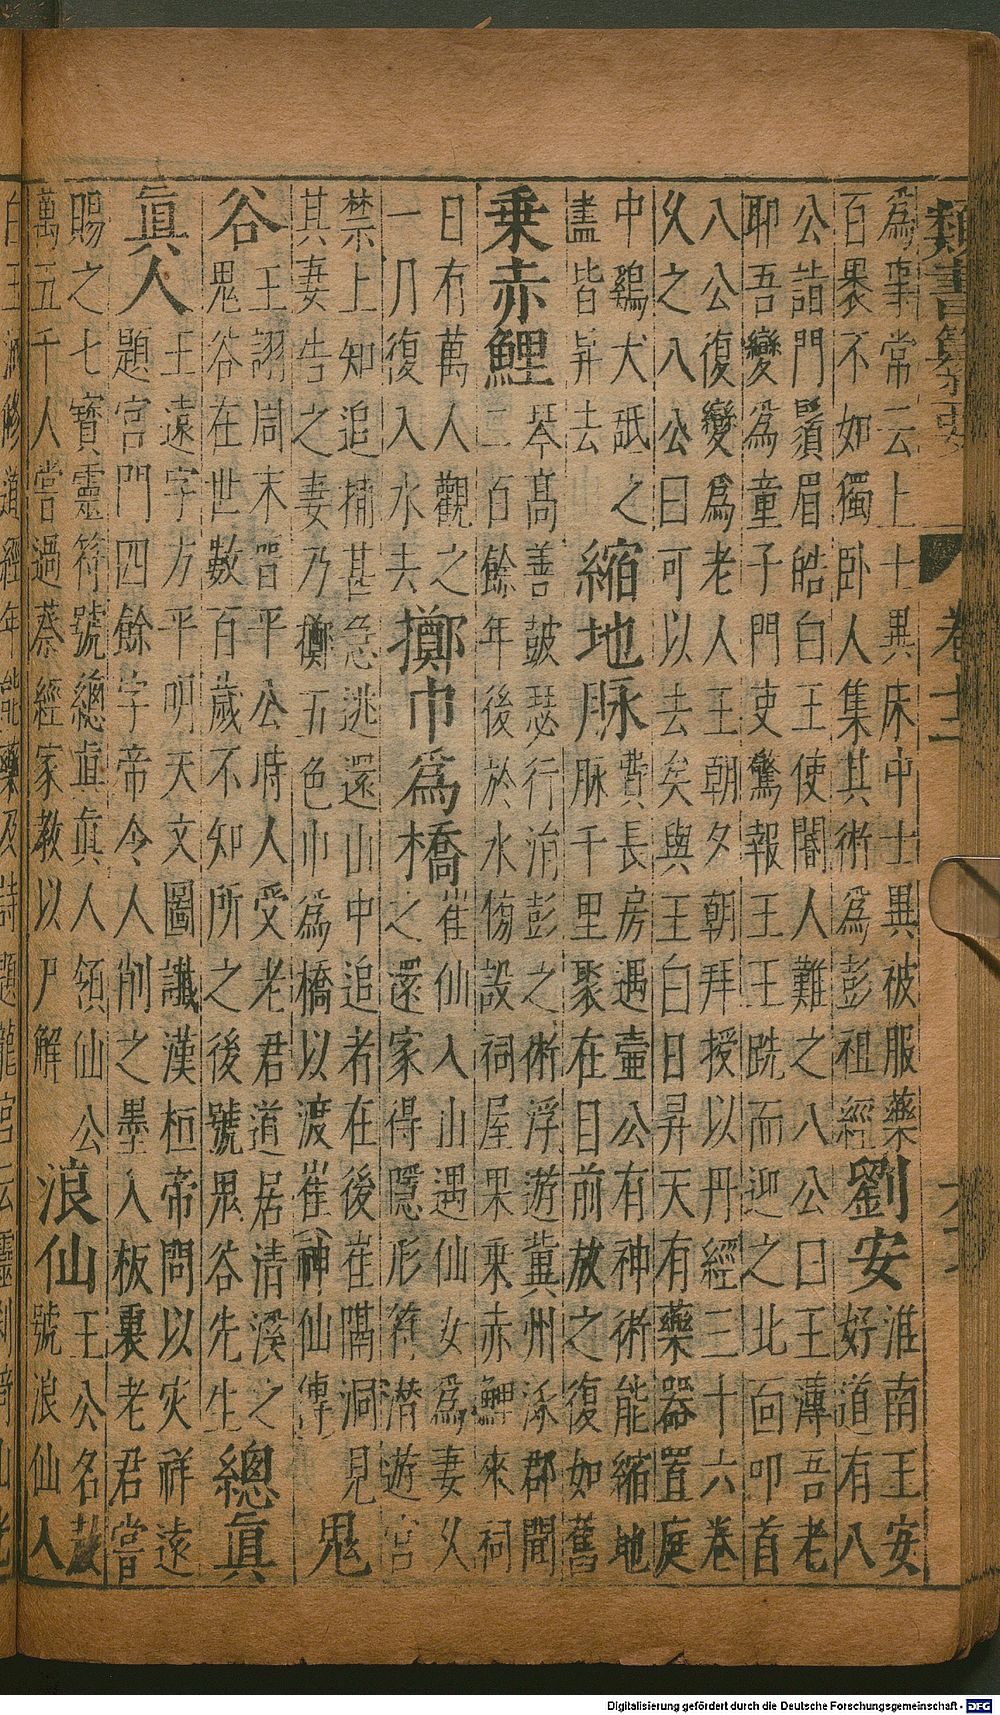 類書纂要 卷十二
為事常云上士異床中士異被服藥
百裹不如獨卧人集其術為彭祖經
劉安
淮南王安
好道有八
公詣門鬚眉皓白王使閽人難之八公曰王薄吾老
耶吾變為童子門吏驚報王王跣而迎之北面叩首
八公復變爲老人王朝夕朝拜授以丹經三十六卷
乆之八公曰可以去矣與王白日昇天有藥器置庭
中鷄犬舐之
盡皆昇去
縮地脉
費長房遇壷公有神術能縮地
脉千里聚在目前放之復如舊
乗赤鯉
琴髙善皷瑟行涓彭之術浮遊冀州涿郡間
二百餘年後於水傍設祠屋果乗赤鯉來祠
日有萬人觀之
一月復入水去
擲巾爲橋
崔仙入山遇仙女爲妻乆
之還家得隱形符潜遊宫
禁上知追捕甚急逃還山中追者在後崔隔洞見
其妻告之妻乃擲五色巾為橋以渡崔神仙傳
鬼
谷
王詡周末晉平公時人受老君道居清溪之
鬼谷在世數百歲不知所之後號鬼谷先生
總眞
眞人
王遠字方平明天文圖讖漢桓帝問以灾祥遠
題宫門四餘字帝令人削之墨入板裏老君嘗
賜之七寶靈符號總眞眞人領仙公
萬五千人嘗過蔡經家教以尸解
浪仙
王公名敖
號浪仙人
Digitalisierung gefördert durch die Deutsche Forschungsgemeinschaft - DFG